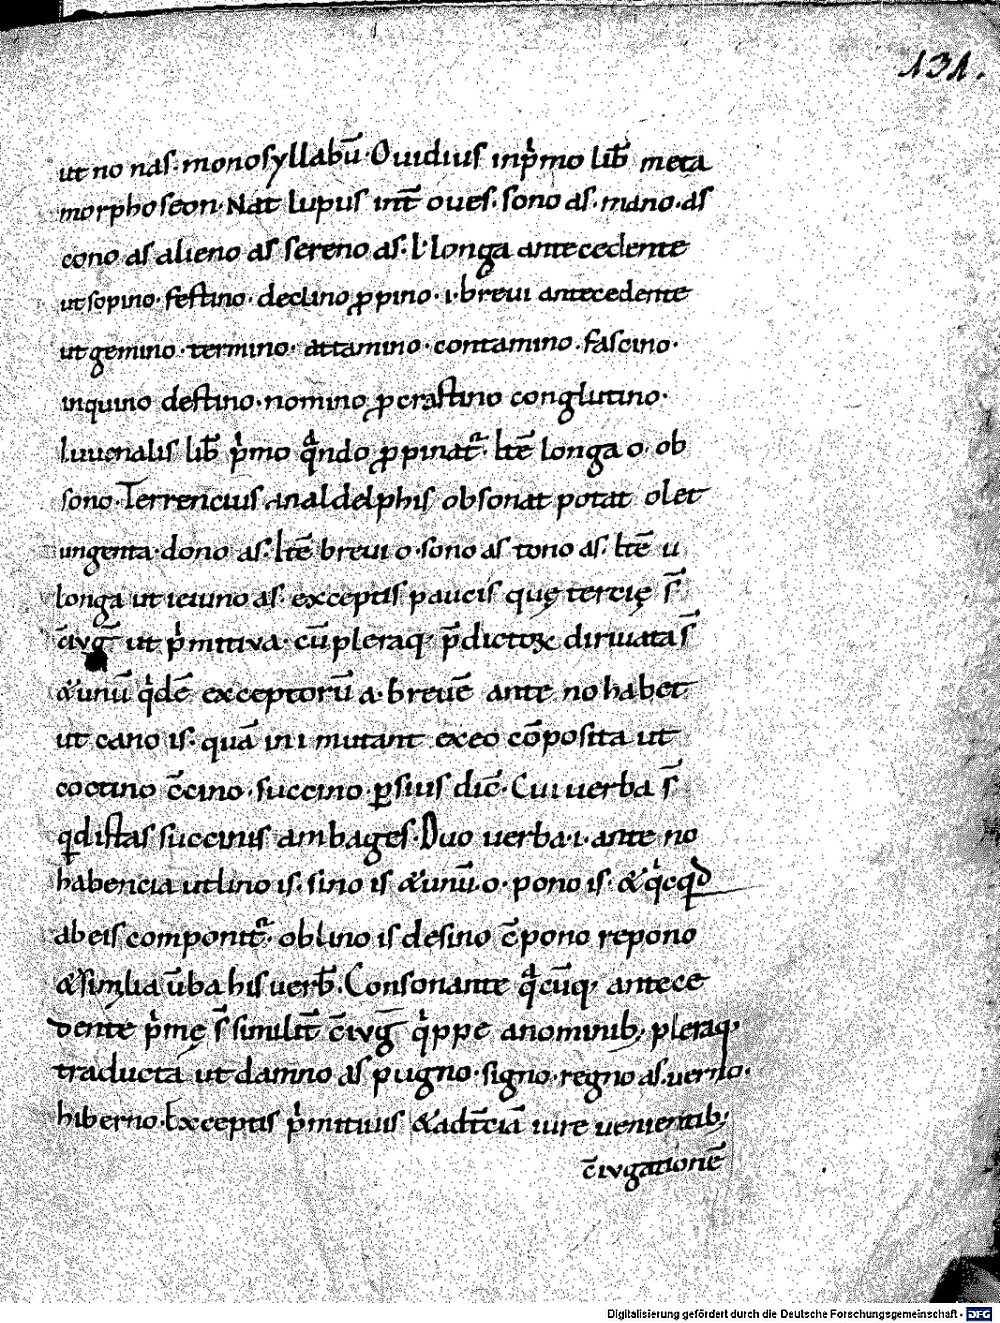 131.
ut no nas. monosyllabū. Ouidius inpͥmo lib̄ meta
morphoseon. Nat lupus int̄ oues. sono as. mano. as
cono as alieno as sereno as. l longa antecedente
ut sopino. festino. declino ꝓpino. i. breui antecedente
ut gemino. termino. attamino. contamino. fascino.
inquino destino. nomino ꝓcrastino conglutino.
Iuuenalis lib̄ pͥmo qͣndo ꝓpinat᷑. It̄e longa o. ob
sono. Terrencius in aldelphis obsonat potat olet
ungenta. dono as. It̄e breui o. sono as tono as. It̄e u
longa ut ieiuno as. exceptis paucis quę tercię s̄
c̄iug̅ ut pͥmitiva. cū pleraq; p̄dictoꝝ diriuata s̄
&unū qͥdē exceptorū a. breuē ante no habet
ut cano is. quā in i mutant exeo cōposita ut
coccino c̄cino. succino. ꝑsius dic̄. Cui uerba s̄
qdistas succinis ambages. Duo uerba. i. ante no
habencia ut lino is. sino is &unū. o. pono is. &qͥcqͥd
ab eis componit᷑. oblino is desino c̄pono repono
&similia ūba his uerb̄. Consonante qͣcūq; antece
dente pͥmę s̄ similit̄ c̄iug̅ qͥppe a nominib; pleraq;
traducta ut damno as pugno. signo. regno as. uerno.
hiberno. Exceptis pͥmitiuis &adt̄ciā iure uenientib;
c̄iugationē
Digitalisierung gefördert durch die Deutsche Forschungsgemeinschaft - DFG